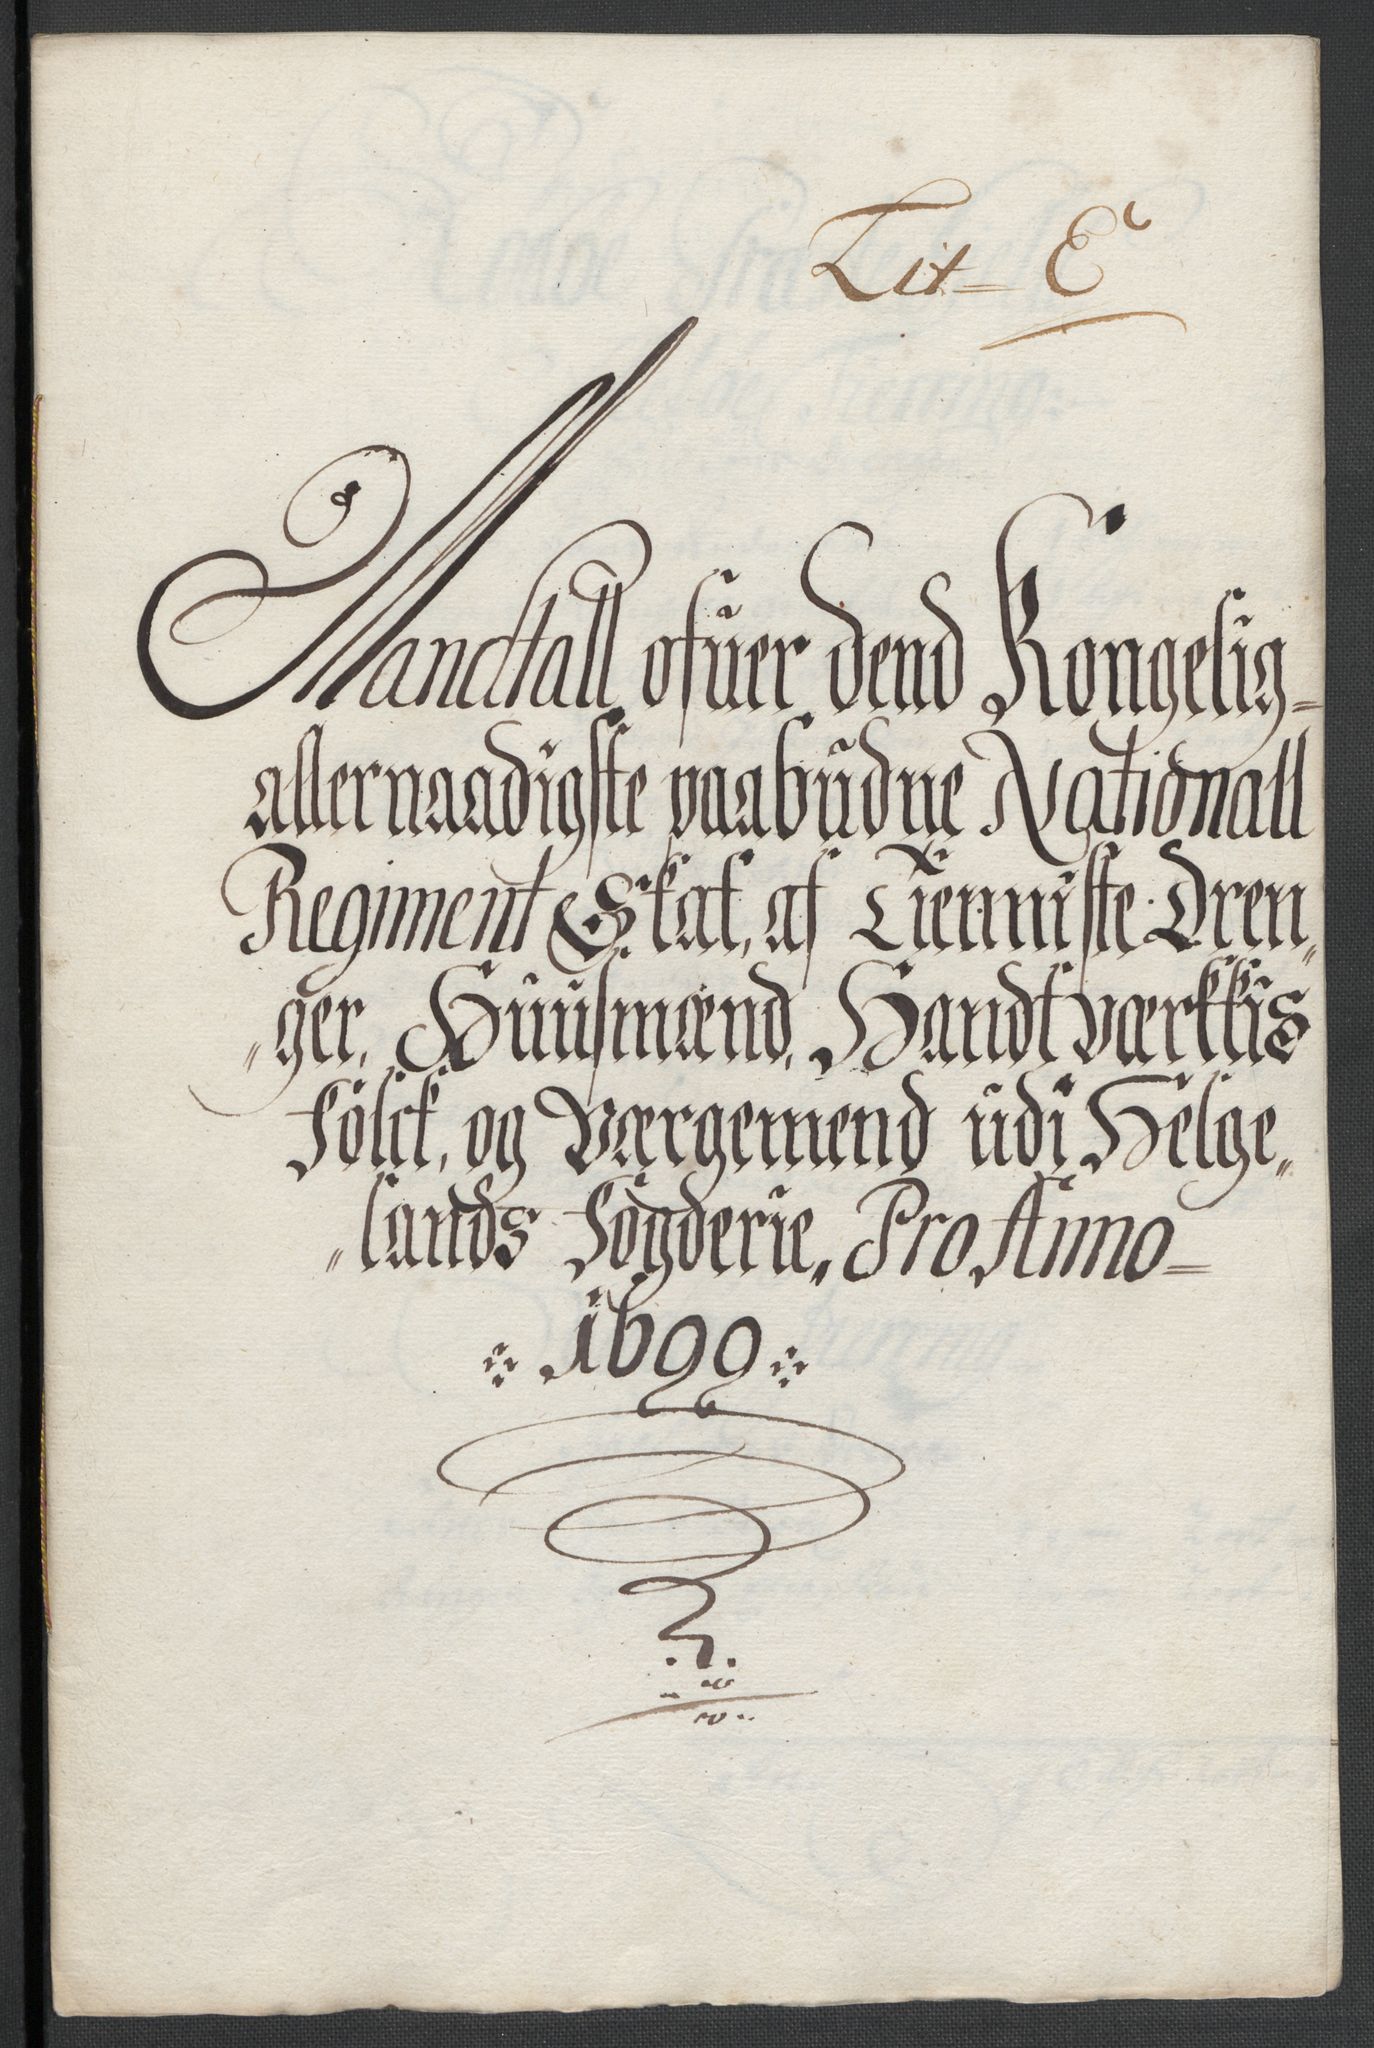 Lit= E
Mandtall ofuer dend Kongelig=
allernaadigste paabüdne Nationall
Regiment Skat, af Tienniste Dren„
„ger, Huusmænd, Handtværkkis
folck, og Værgemend üdi Helge„
„lands Fögderie, Pro Anno=
1699